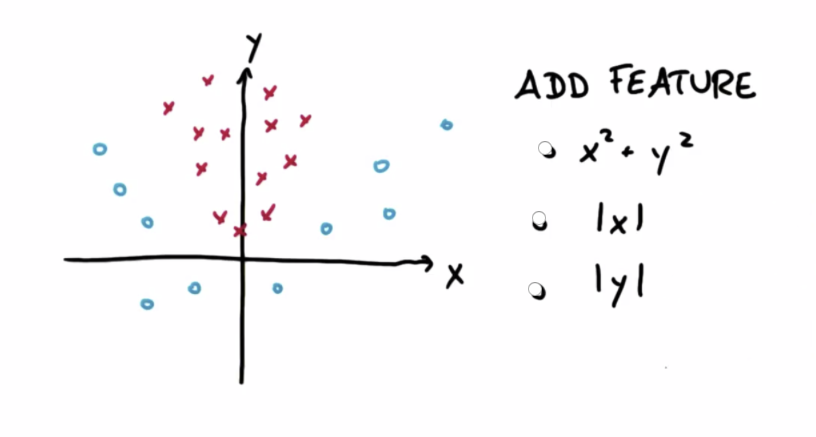 y
ADD FEATURE
x² + y²
|x|
x
|y|